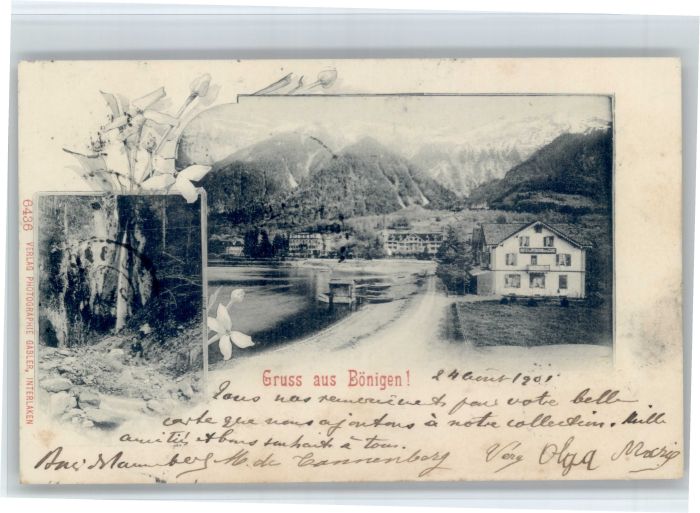 6436 VERLAG PHOTOGRAPHIE GABLER, INTERLAKEN
Gruss aus Bönigen!
24 août 1901
Tous nos remerciements pour votre belle
carte que nous ajoutons à notre collection. Mille
amitiés et bons souhaits à tous.
M. de Tannenberg Véra Olga Marie